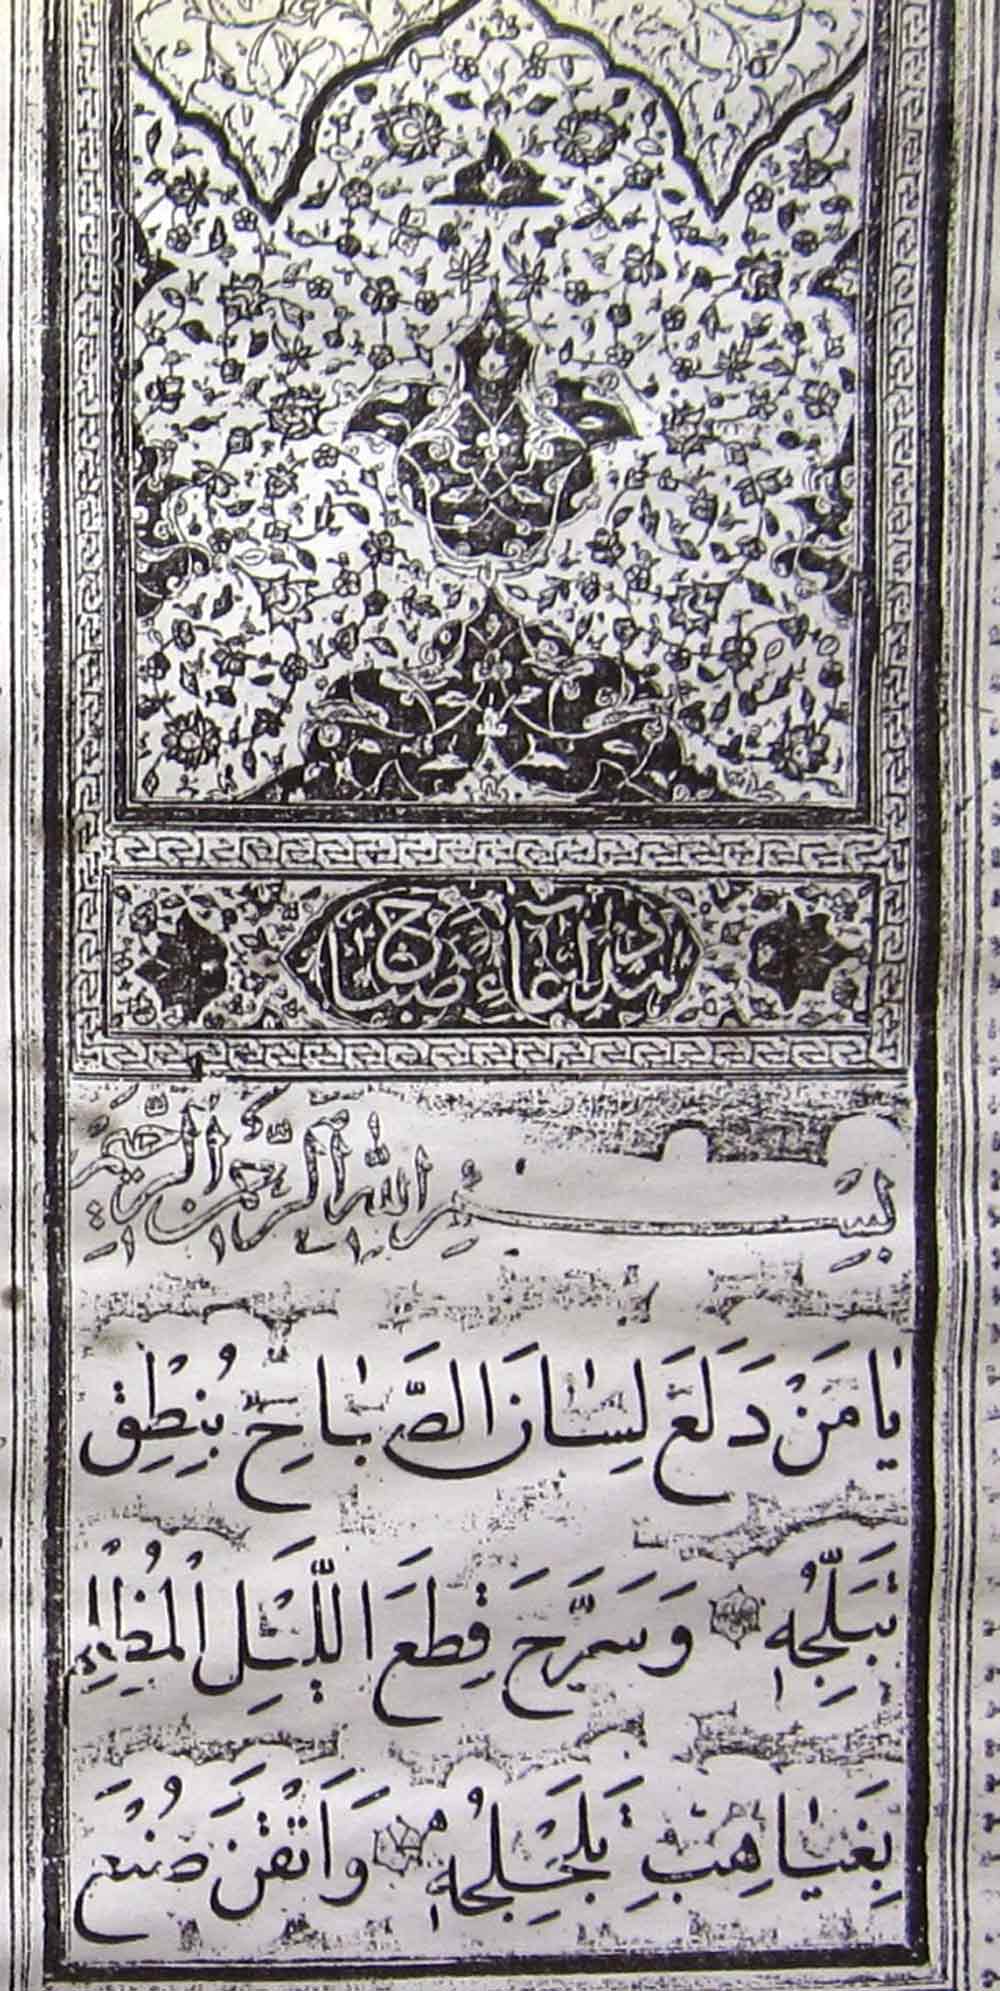 دعاء صباح
بِسْمِ اللهِ الرَّحْمٰنِ الرَّحِيمِ
يٰا مَنْ دَلَعَ لِسٰانَ الصَّبٰاحِ بِنُطْقِ
تَبَلُّجِهِ وَسَرَّحَ قِطَعَ اللَّيْلِ الْمُظْلِمِ
بِغَيٰاهِبِ تَلَجْلُجِهِ وَاَتْقَنَ صُنْعَ